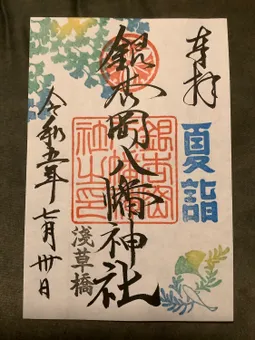 奉拝
夏詣
銀杏岡八幡神社
浅草橋
令和五年七月卅日